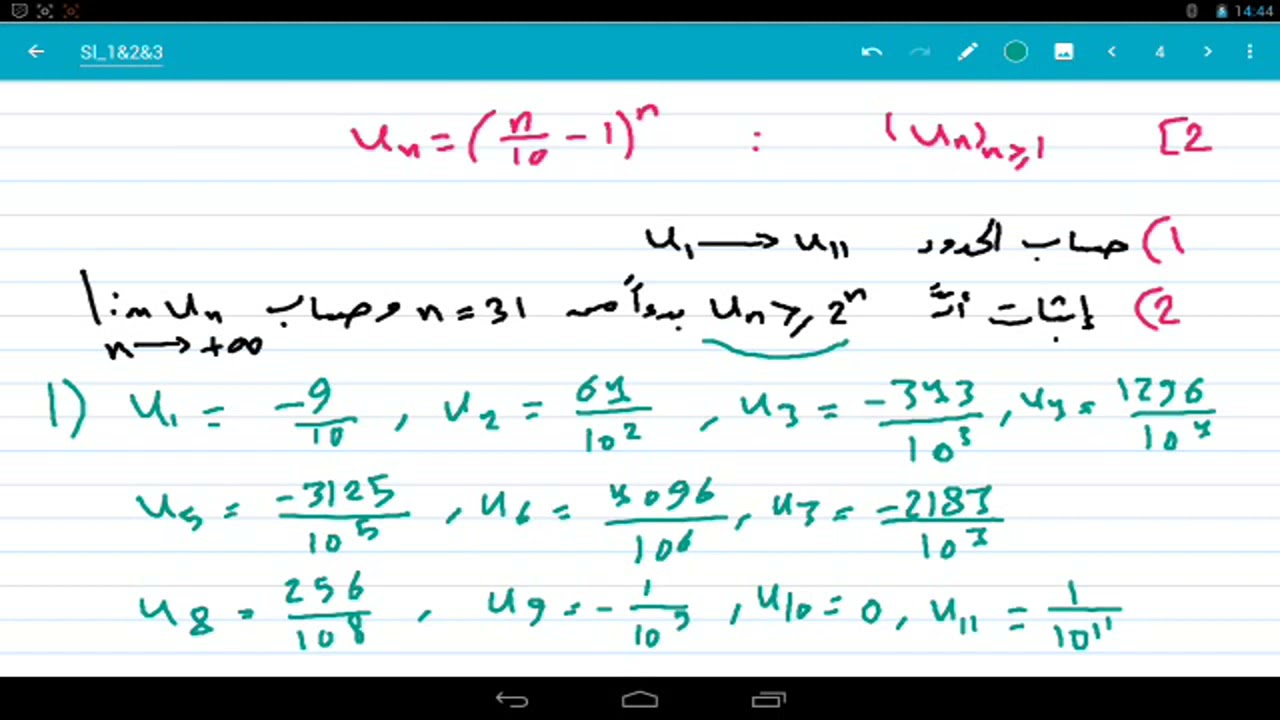 14:44
SI_1&2&3 4
[2 (Un)n≥1 : Un = (n/10 - 1)^n
1) حساب الحدود U1 → U11
2) إثبات أنّ Un ≥ 2^n بدءاً من n = 31 وحساب lim Un
n → +∞
1) U1 = -9/10 , U2 = 64/10^2 , U3 = -343/10^3 , U4 = 1296/10^4
U5 = -3125/10^5 , U6 = 4096/10^6 , U7 = -2187/10^7
U8 = 256/10^8 , U9 = -1/10^9 , U10 = 0 , U11 = 1/10^11